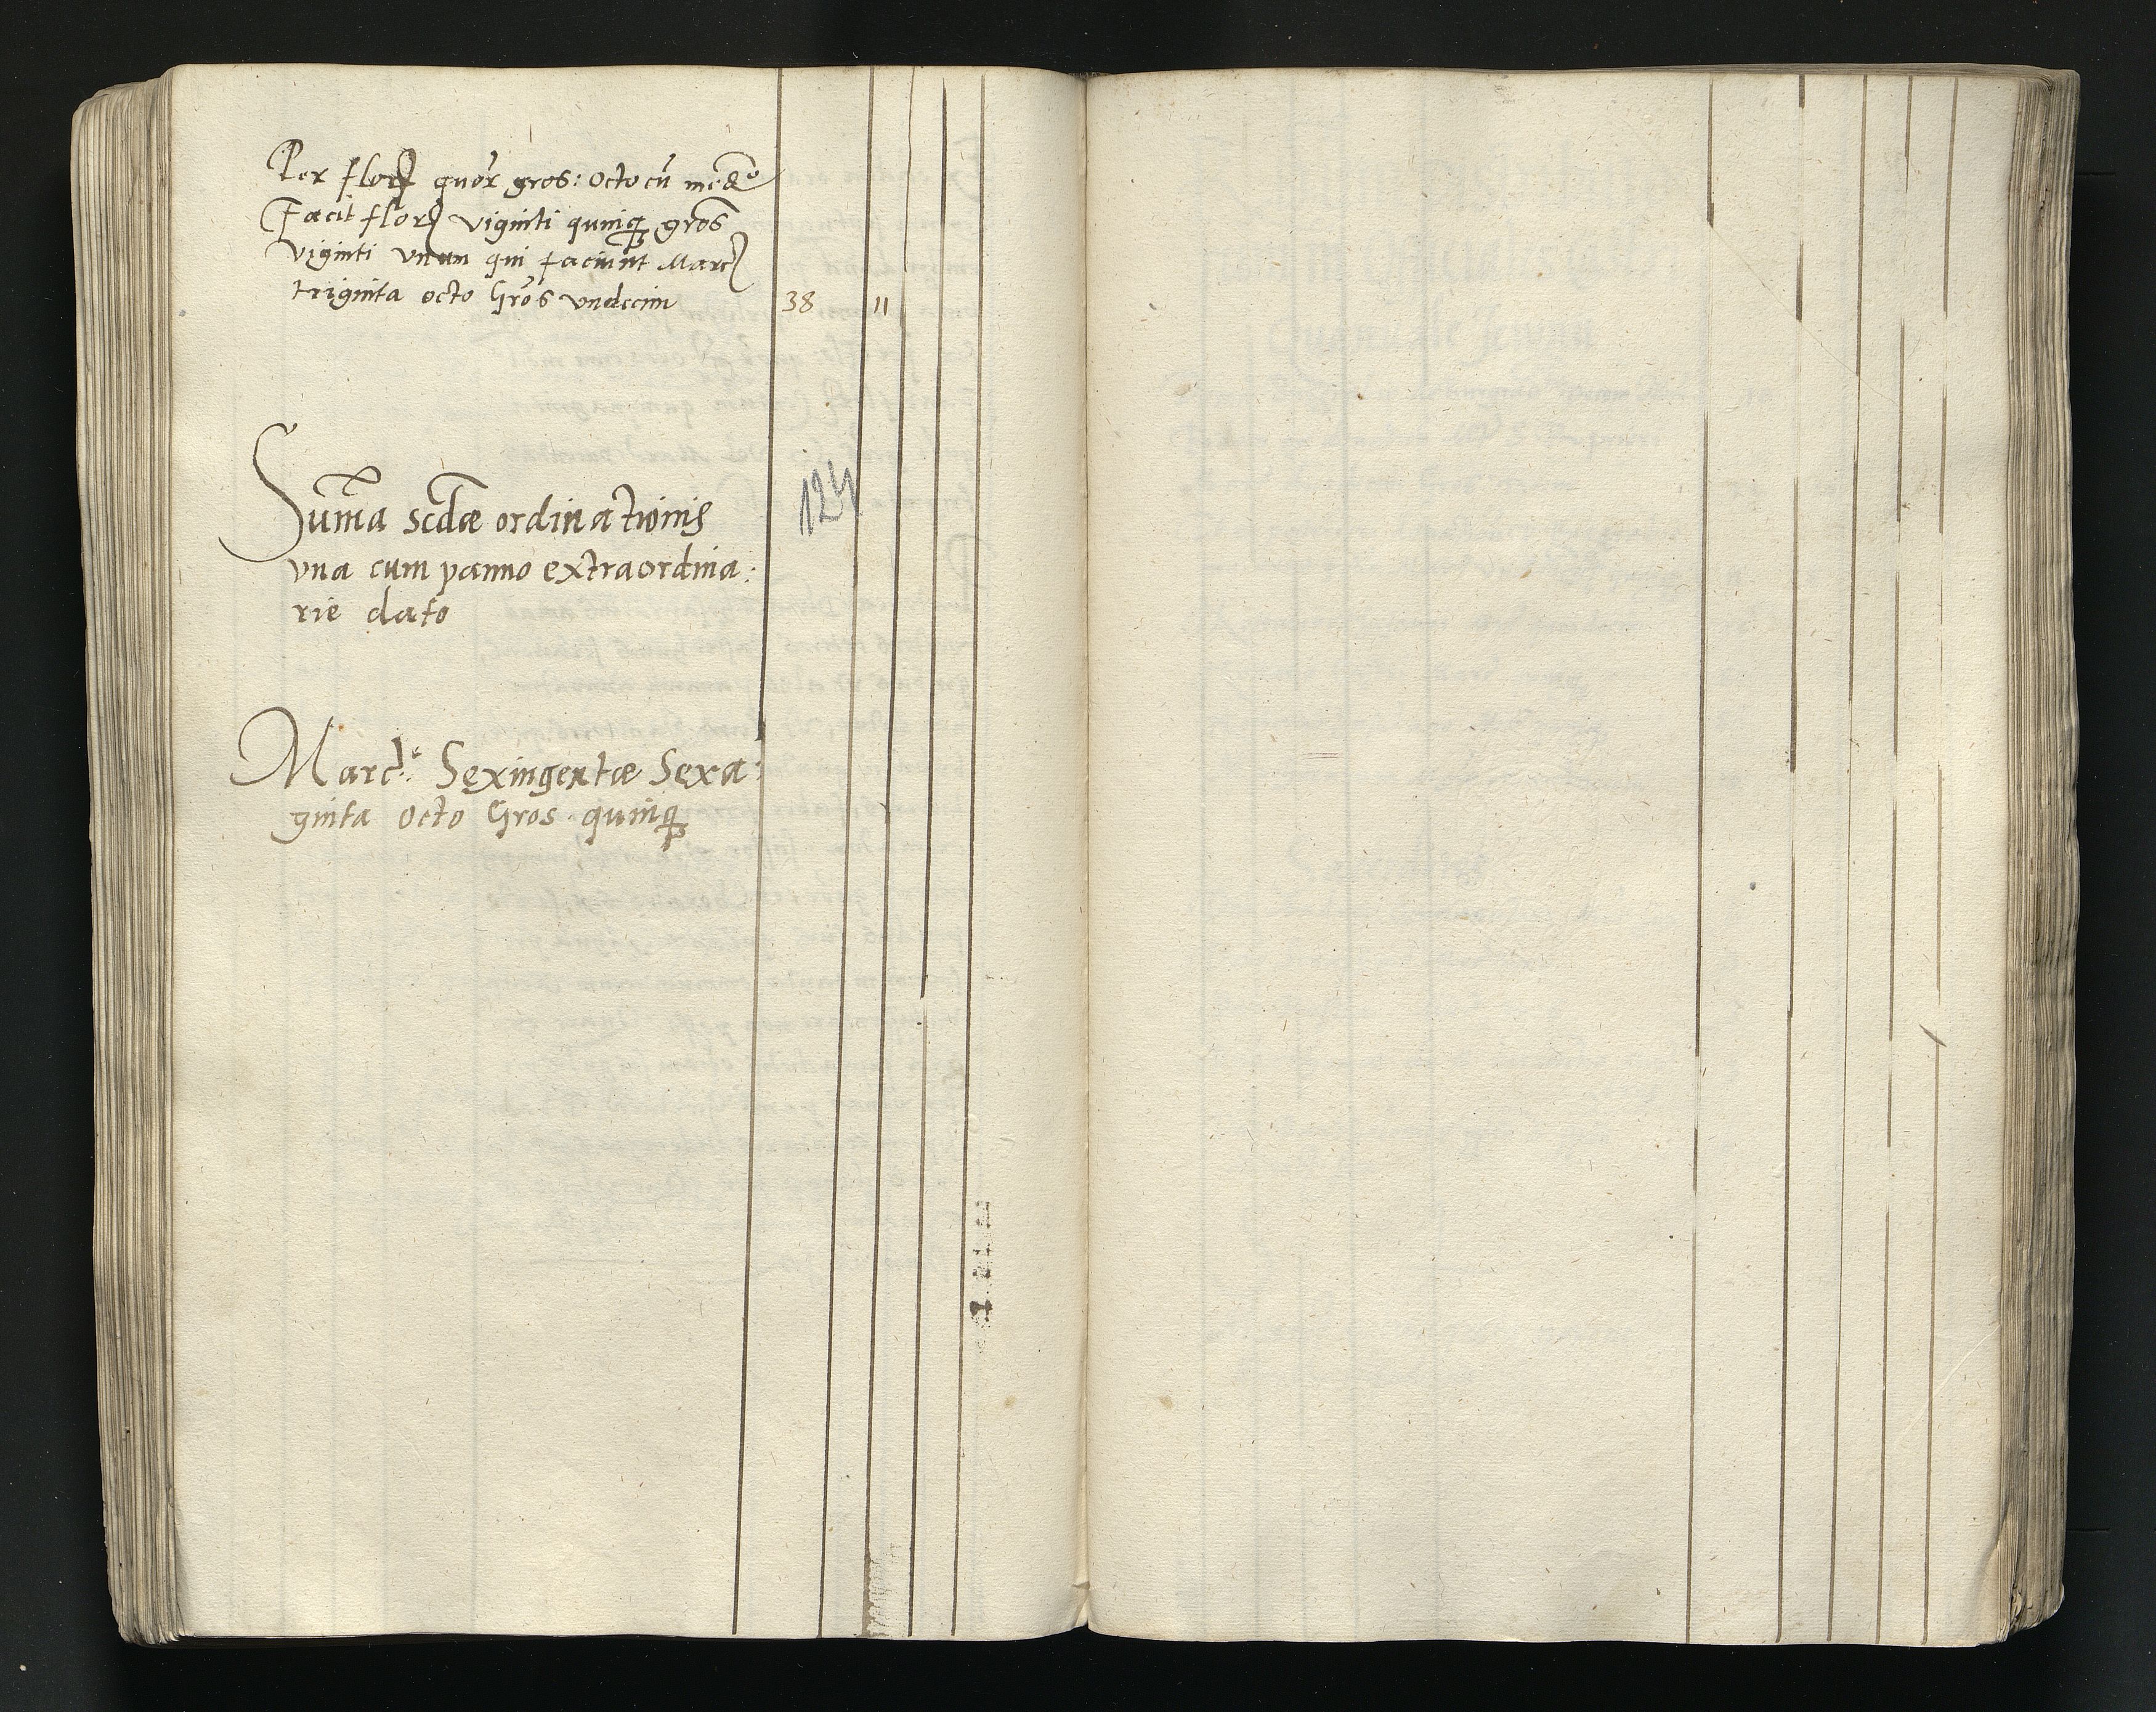 Per flor quor gros: octo cū med°
Facit flor viginti quinq gros
viginti vnum qui faciunt Marc
triginta octo Gros vndecim 38 11
124
Sum̄a scdæ ordinationis
vna cum panno extraordina:
rie dato
Marc. Sexingentæ Sexa:
ginta octo Gros quinq